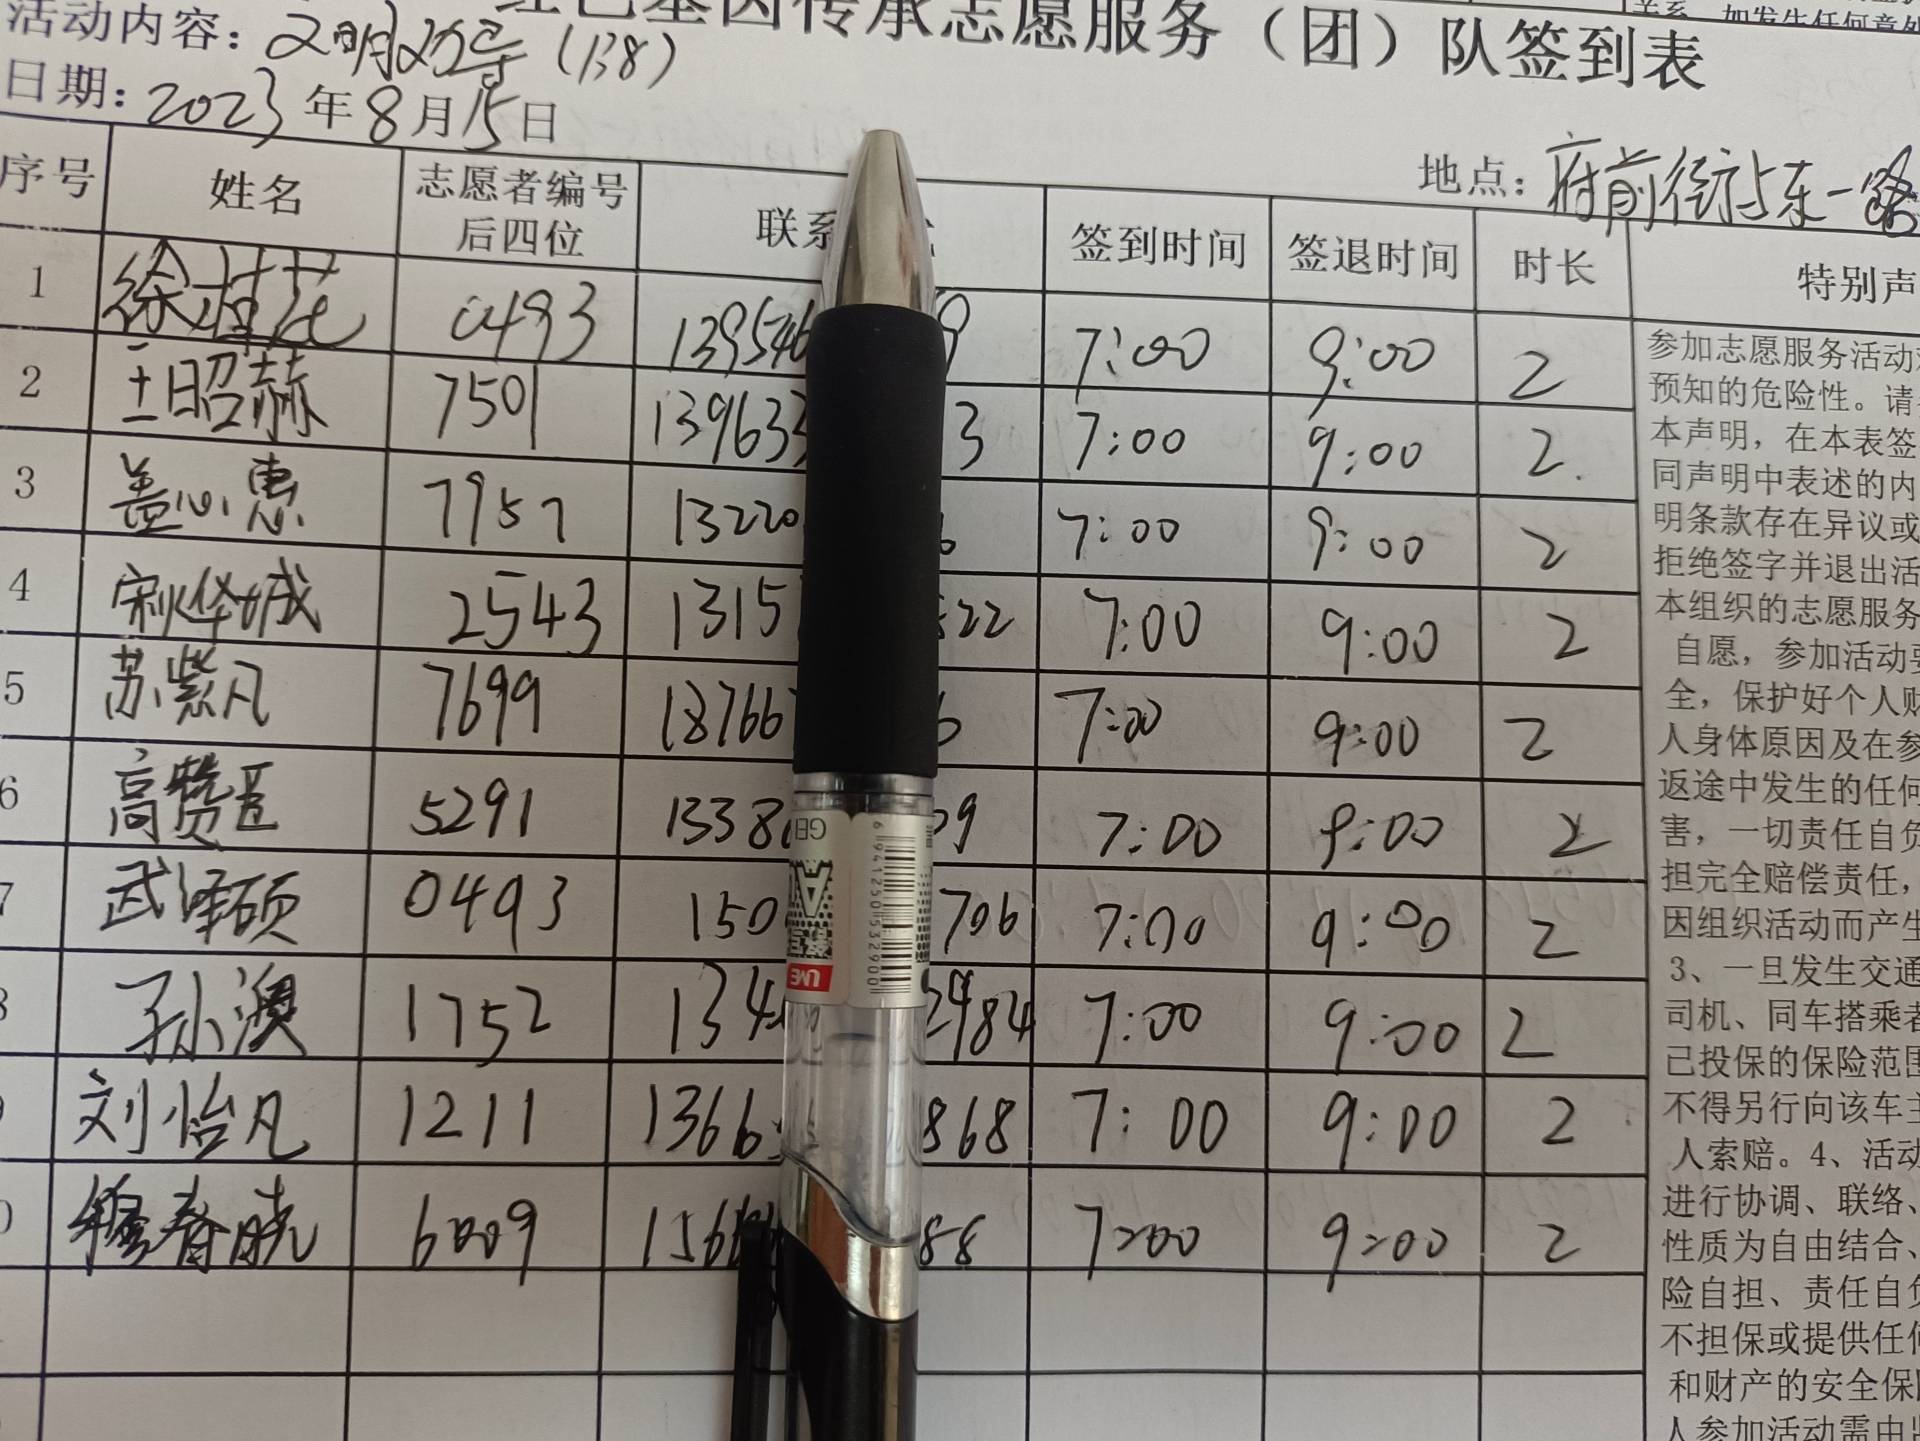 红色基因传承志愿服务（团）队签到表
关系，如发生任何意外
活动内容：文明劝导（138）
日期：2023年8月15日
地点：府前街与东一路
序号 姓名 志愿者编号后四位 联系 签到时间 签退时间 时长 特别声
1 徐桂花 0493 139546 9 7:00 9:00 2
2 王昭赫 7501 139633 3 7:00 9:00 2.
3 盖心惠 7957 13220 6 7:00 9:00 2
4 2543 1315 522 7:00 9:00 2
5 苏紫凡 7699 18766 6 7:00 9:00 2
6 高赞 5291 1338 09 7:00 9:00 2
7 武泽硕 0493 150 706 7:00 9:00 2
8 孙澳 1752 134 2984 7:00 9:00 2
9 刘怡凡 1211 1366 868 7:00 9:00 2
0 穆春晓 6009 156 88 7:00 9:00 2
参加志愿服务活动
预知的危险性。请
本声明，在本表签
同声明中表述的内
明条款存在异议或
拒绝签字并退出活
本组织的志愿服务
自愿，参加活动要
全，保护好个人财
人身体原因及在参
返途中发生的任何
害，一切责任自负
担完全赔偿责任，
因组织活动而产生
3、一旦发生交通
司机、同车搭乘者
己投保的保险范围
不得另行向该车主
人索赔。4、活动
进行协调、联络、
性质为自由结合、
险自担、责任自负
不担保或提供任何
和财产的安全保
人参加活动需由
GE
6941250532900